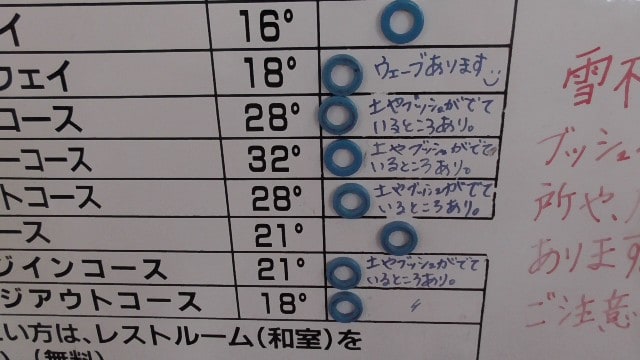 イ 16°
ウェイ 18° ウェーブあります
コース 28° 土やブッシュがでて
いるところあり。
ーコース 32° 土やブッシュがでて
いるところあり。
トコース 28° 土やブッシュがでて
いるところあり。
ース 21°
ジインコース 21° 土やブッシュがでて
いるところあり。
ジアウトコース 18° 〃
い方は、レストルーム(和室)を
(無料)
雪不
ブッシュ
所や、
あります
ご注意